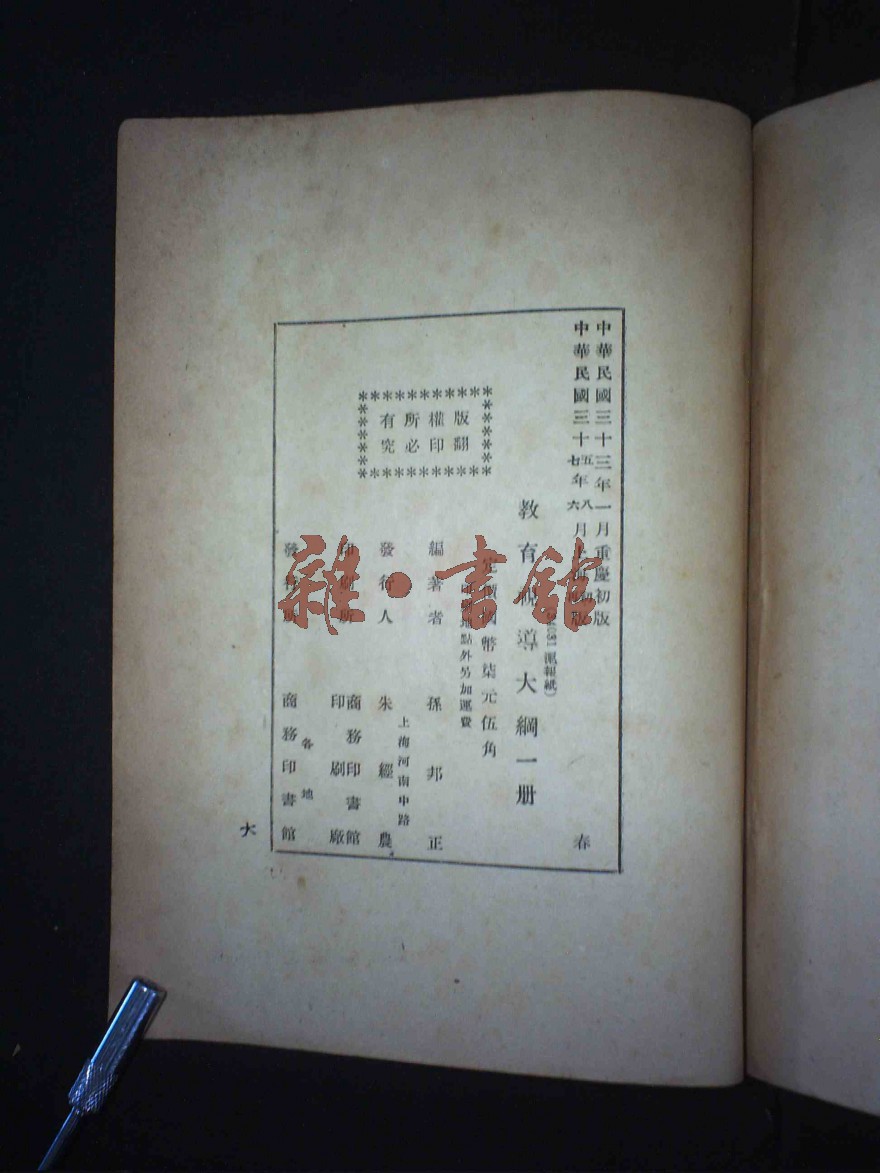 中華民國三十三年一月重慶初版
中華民國三十五年八月上海初版
七 六
春
教育視導大綱一册
滬報紙)
定價國幣柒元伍角
印刷地點外另加運費
版權所有
翻印必究
編著者 孫邦正
上海河南中路
發行人 朱經農
印刷所 商務印書館
印刷廠
各地
發行所 商務印書館
大
雜·書館